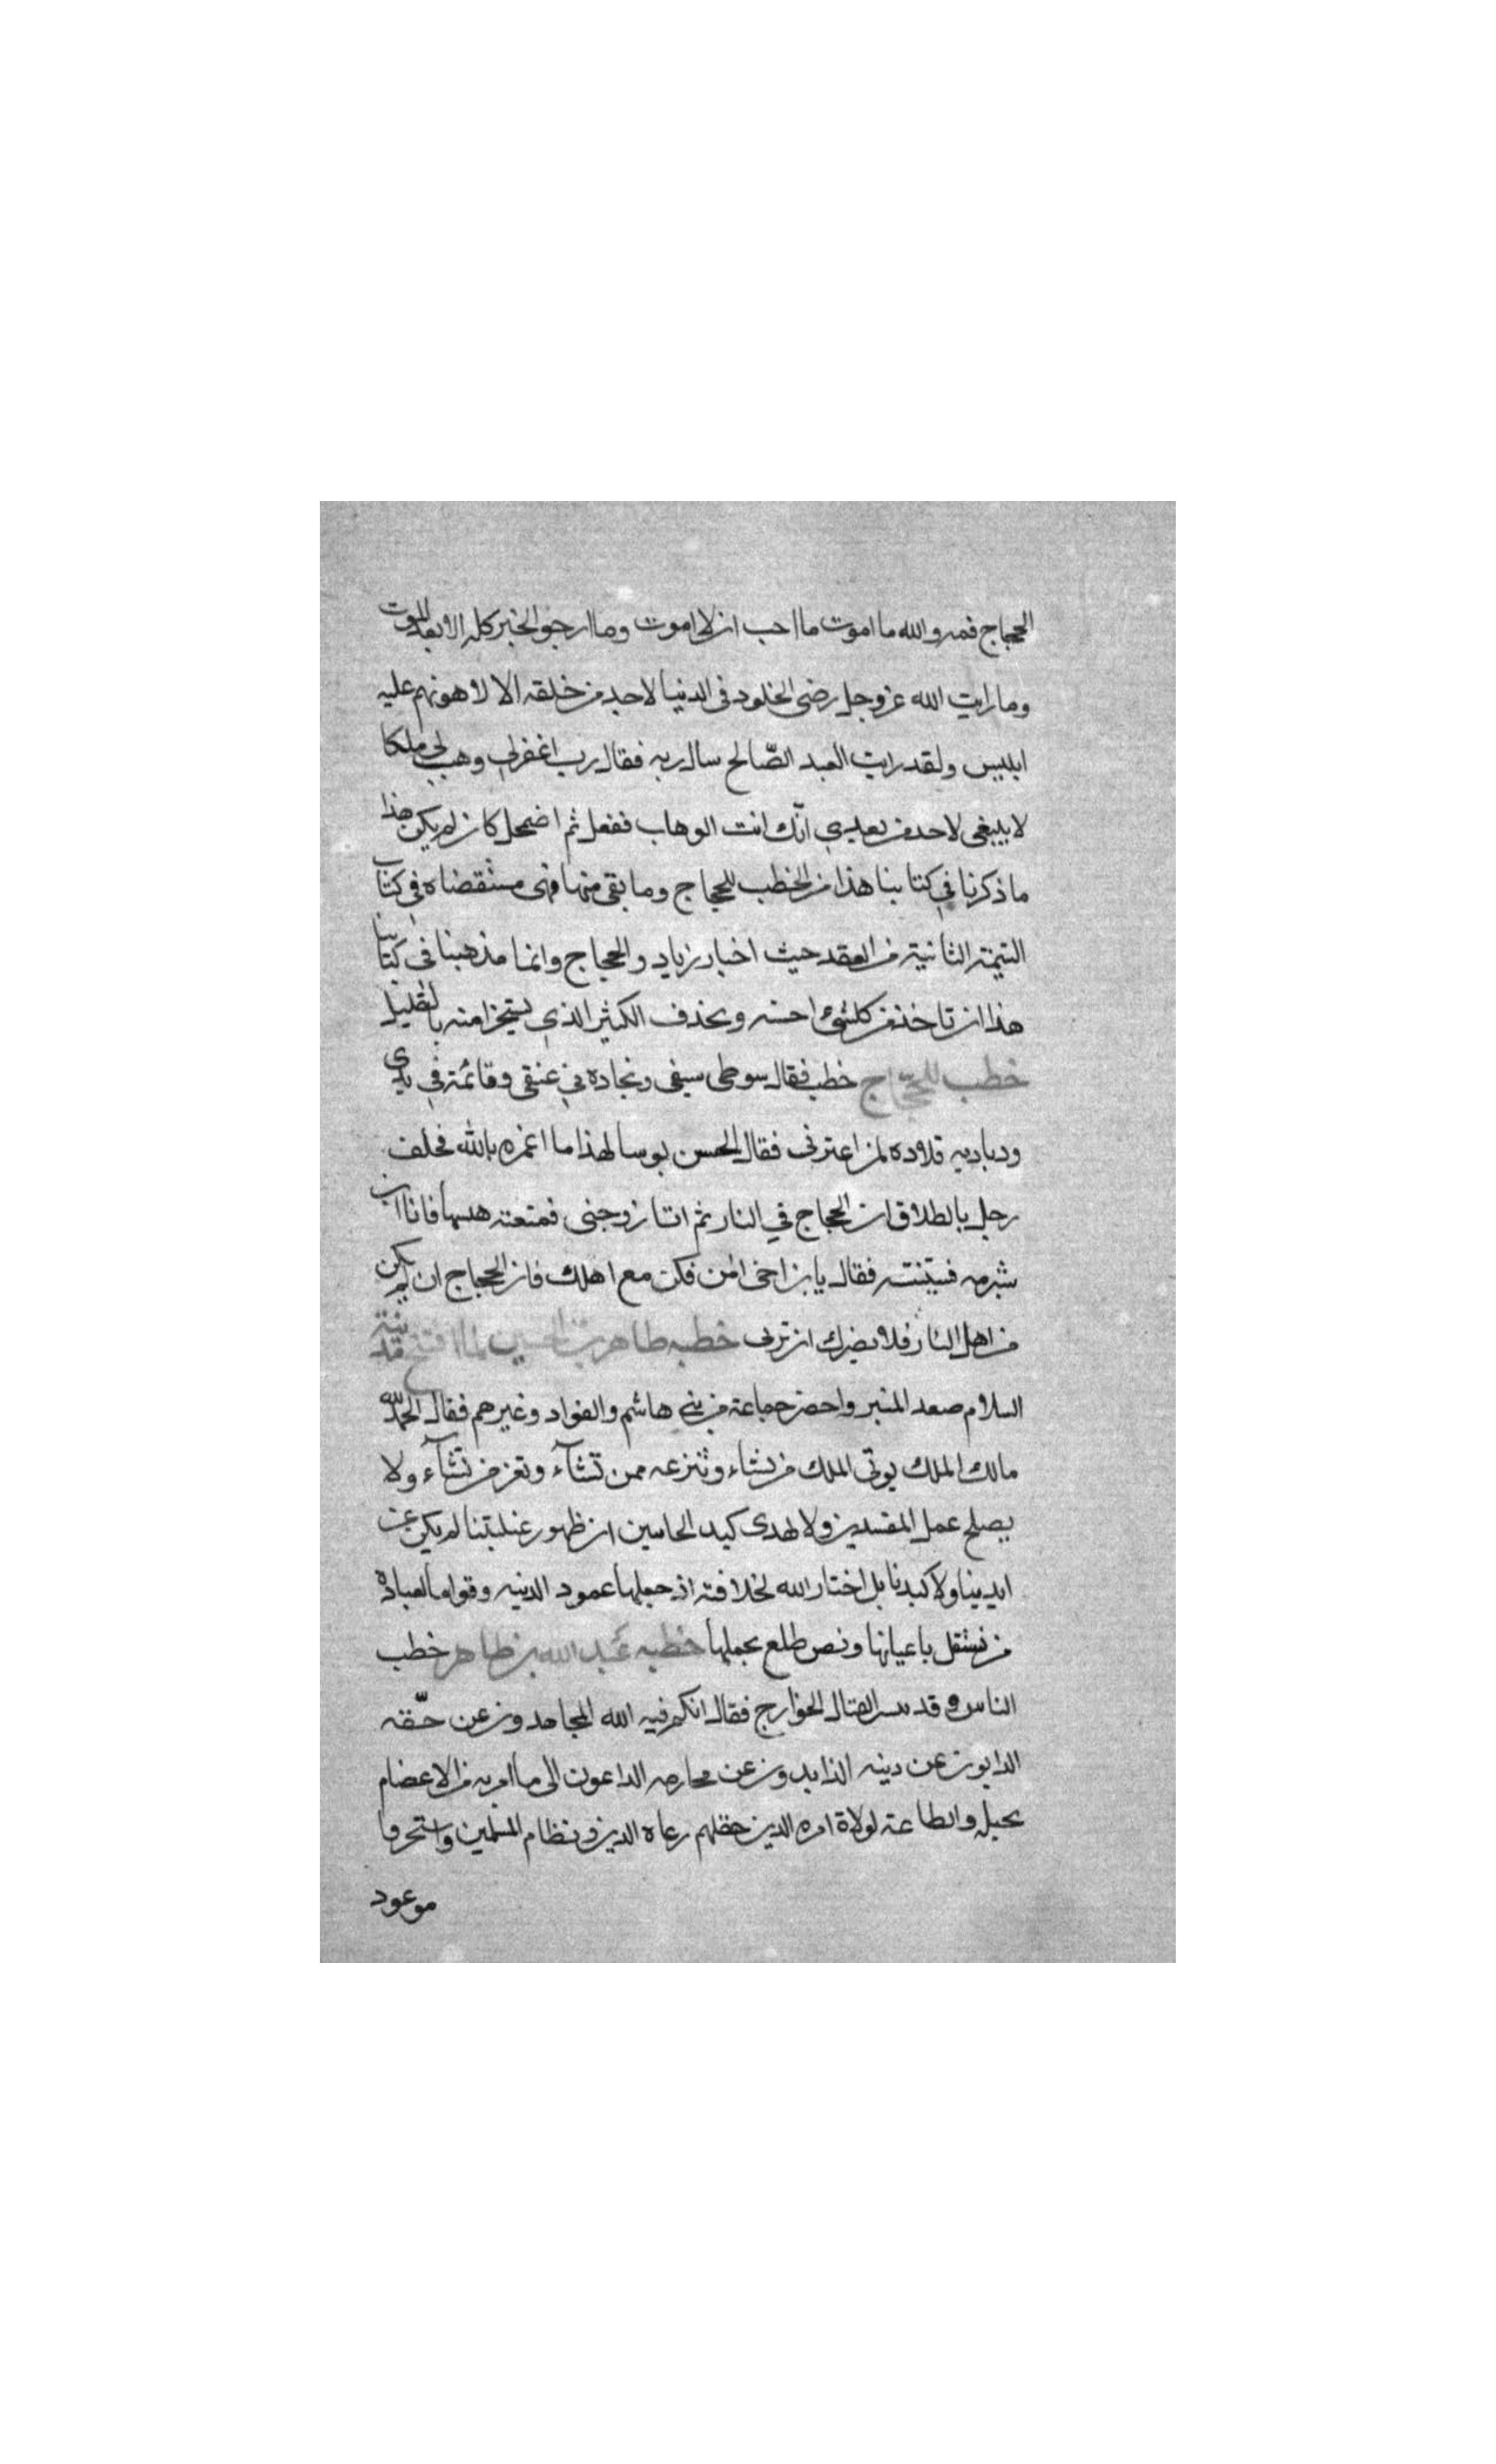 الحجاج فمه والله ما اموت ما احب ان لا اموت وما ارجو الخير كله الا بعد الموت
وما رايت الله عز وجل رضى الخلود فى الدنيا لاحد من خلقه الا لاهونهم عليه
ابليس ولقد رايت العبد الصّالح سال ربه فقال رب اغفر لي وهب لي ملكا
لا ينبغى لاحد من بعدي انّك انت الوهاب ففعل ثم اضمحل كان لم يكن هذا
ما ذكرنا في كتابنا هذا من الخطب للحجاج وما بقى منها فهى مستقضاه في كتاب
اليتيمة الثانية من العقد حيث اخبار زياد والحجاج وانما مذهبنا في كتابنا
هذا ان تاخذ من كلشئ احسنه ونحذف الكثير الذي يستجزا منه بالقليل
خطب للحجّاج خطب فقال سوطى سيفى ونجاده في عنقى وقائمة في يدى
ودبابه قلاده لمن اعترنى فقال الحسن بوسا لهذا ما اغره بالله فحلف
رجل بالطلاق ان الحجاج في النار ثم اتا زوجتى فمتعته نفسها فاتا ابن
شبرمه فستفتيه فقال يا بن اخى امن فكن مع اهلك فان الحجاج ان لم يكن
من اهل النار فلا يضرك ان تزنى خطبه طاهر بن الحسين لما افتتح مدينة
السلام صعد المنبر واحضر جماعة من بني هاشم والقواد وغيرهم فقال الحمد لله
مالك الملك يوتى الملك من نشاء وتنزعه ممن تشآء وتعز من تشآء ولا
يصلح عمل المفسدين ولا يهدى كيد الخاينين ان ظهور غلبتنا لم يكن عن
ايدينا ولا كيدنا بل اختار الله لخلافته اذ جعلها عمود الدينه وقواما لعباده
من نستقل باعيانها ونص طلع بجملها خطبه عبد الله بن طاهر خطب
الناس وقد لقتال الخوارج فقال انكم فيه الله المجاهدون عن حقّه
الدابون عن دينه الذايدون عن محارمه الداعون الى ما امر به من الاعضام
بحبله والطاعة لولاة امره الذين جعلهم رعاه الدين ونظام المسلمين واستحرفا
موعود